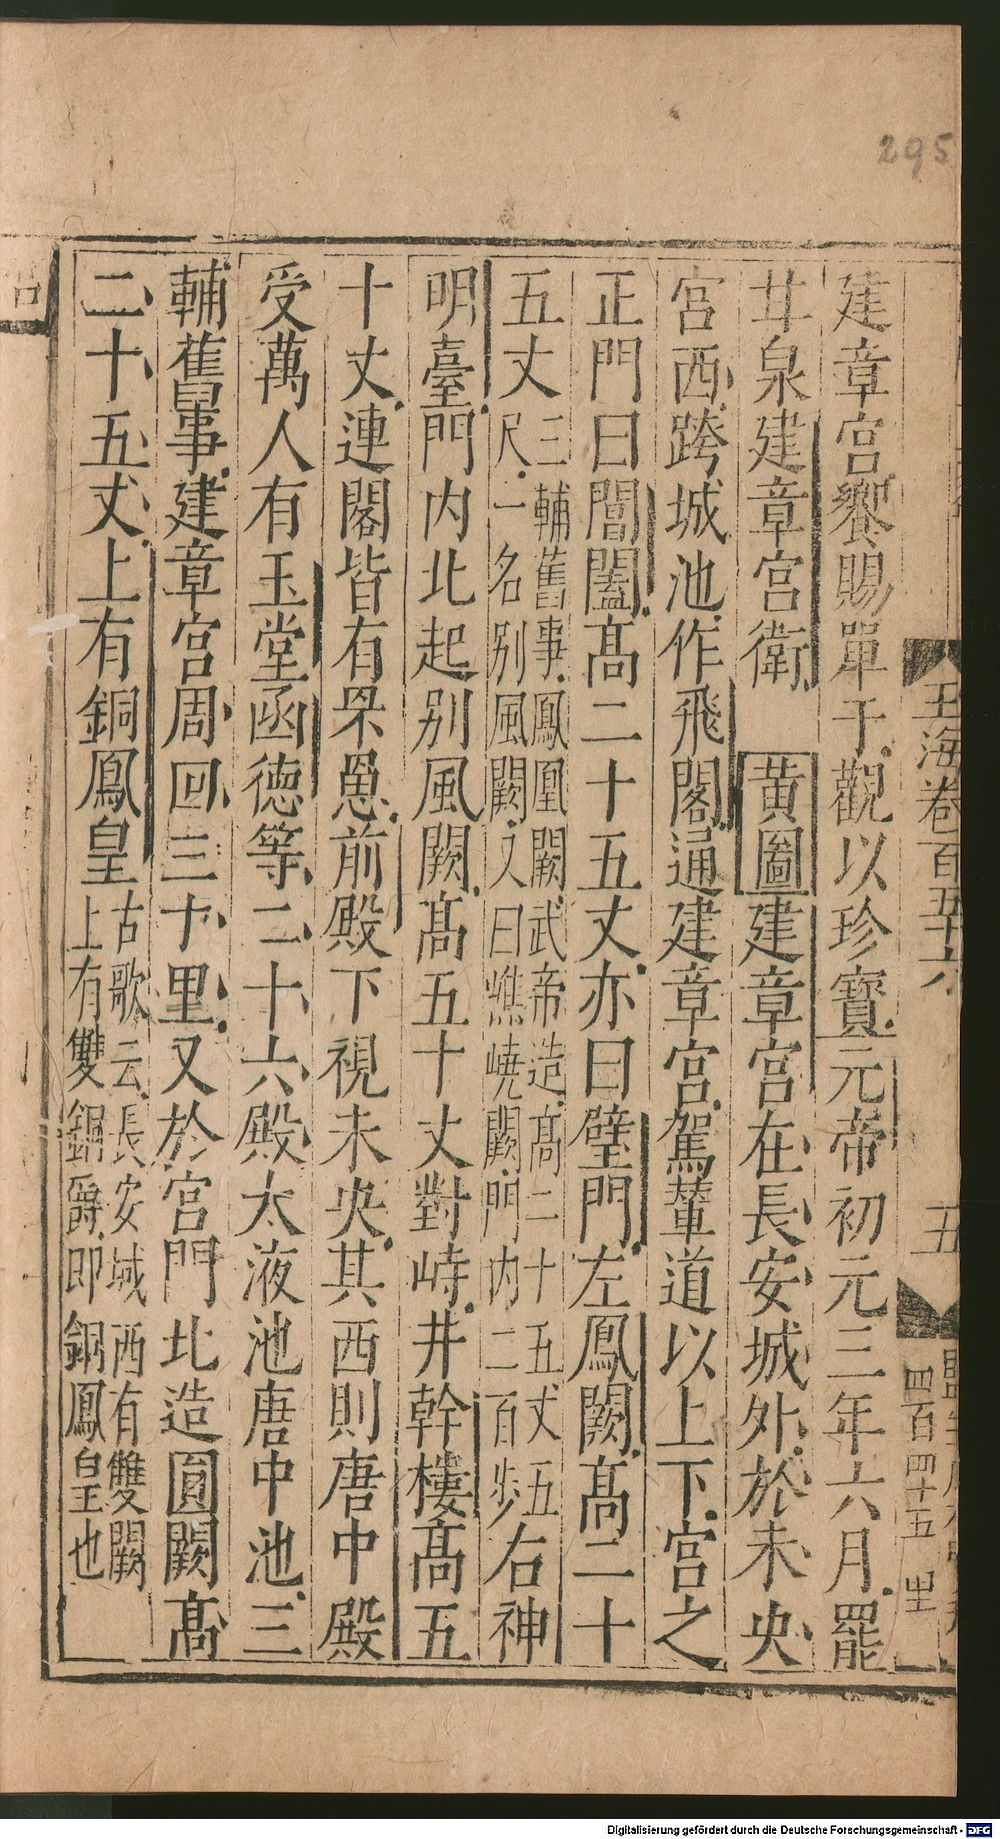 295
玉海卷百五十六
五
四百四十五
建章宮饗賜單于觀以珍寶元帝初元三年六月罷
甘泉建章宮衛 黃圖建章宮在長安城外於未央
宮西跨城池作飛閣通建章宮駕輦道以上下宮之
正門曰閶闔高二十五丈亦曰璧門左鳳闕高二十
五丈三輔舊事鳳凰闕武帝造高二十五丈五
尺一名别風闕又曰嶕嶢闕門内二百步右神
明臺門内北起别風闕高五十丈對峙井幹樓高五
十丈連閣皆有罘罳前殿下視未央其西則唐中殿
受萬人有玉堂函德等二十六殿太液池唐中池三
輔舊事建章宮周回三十里又於宮門北造圓闕高
二十五丈上有銅鳳皇古歌云長安城西有雙闕
上有雙銅爵即銅鳳皇也
Digitalisierung gefördert durch die Deutsche Forschungsgemeinschaft - DFG